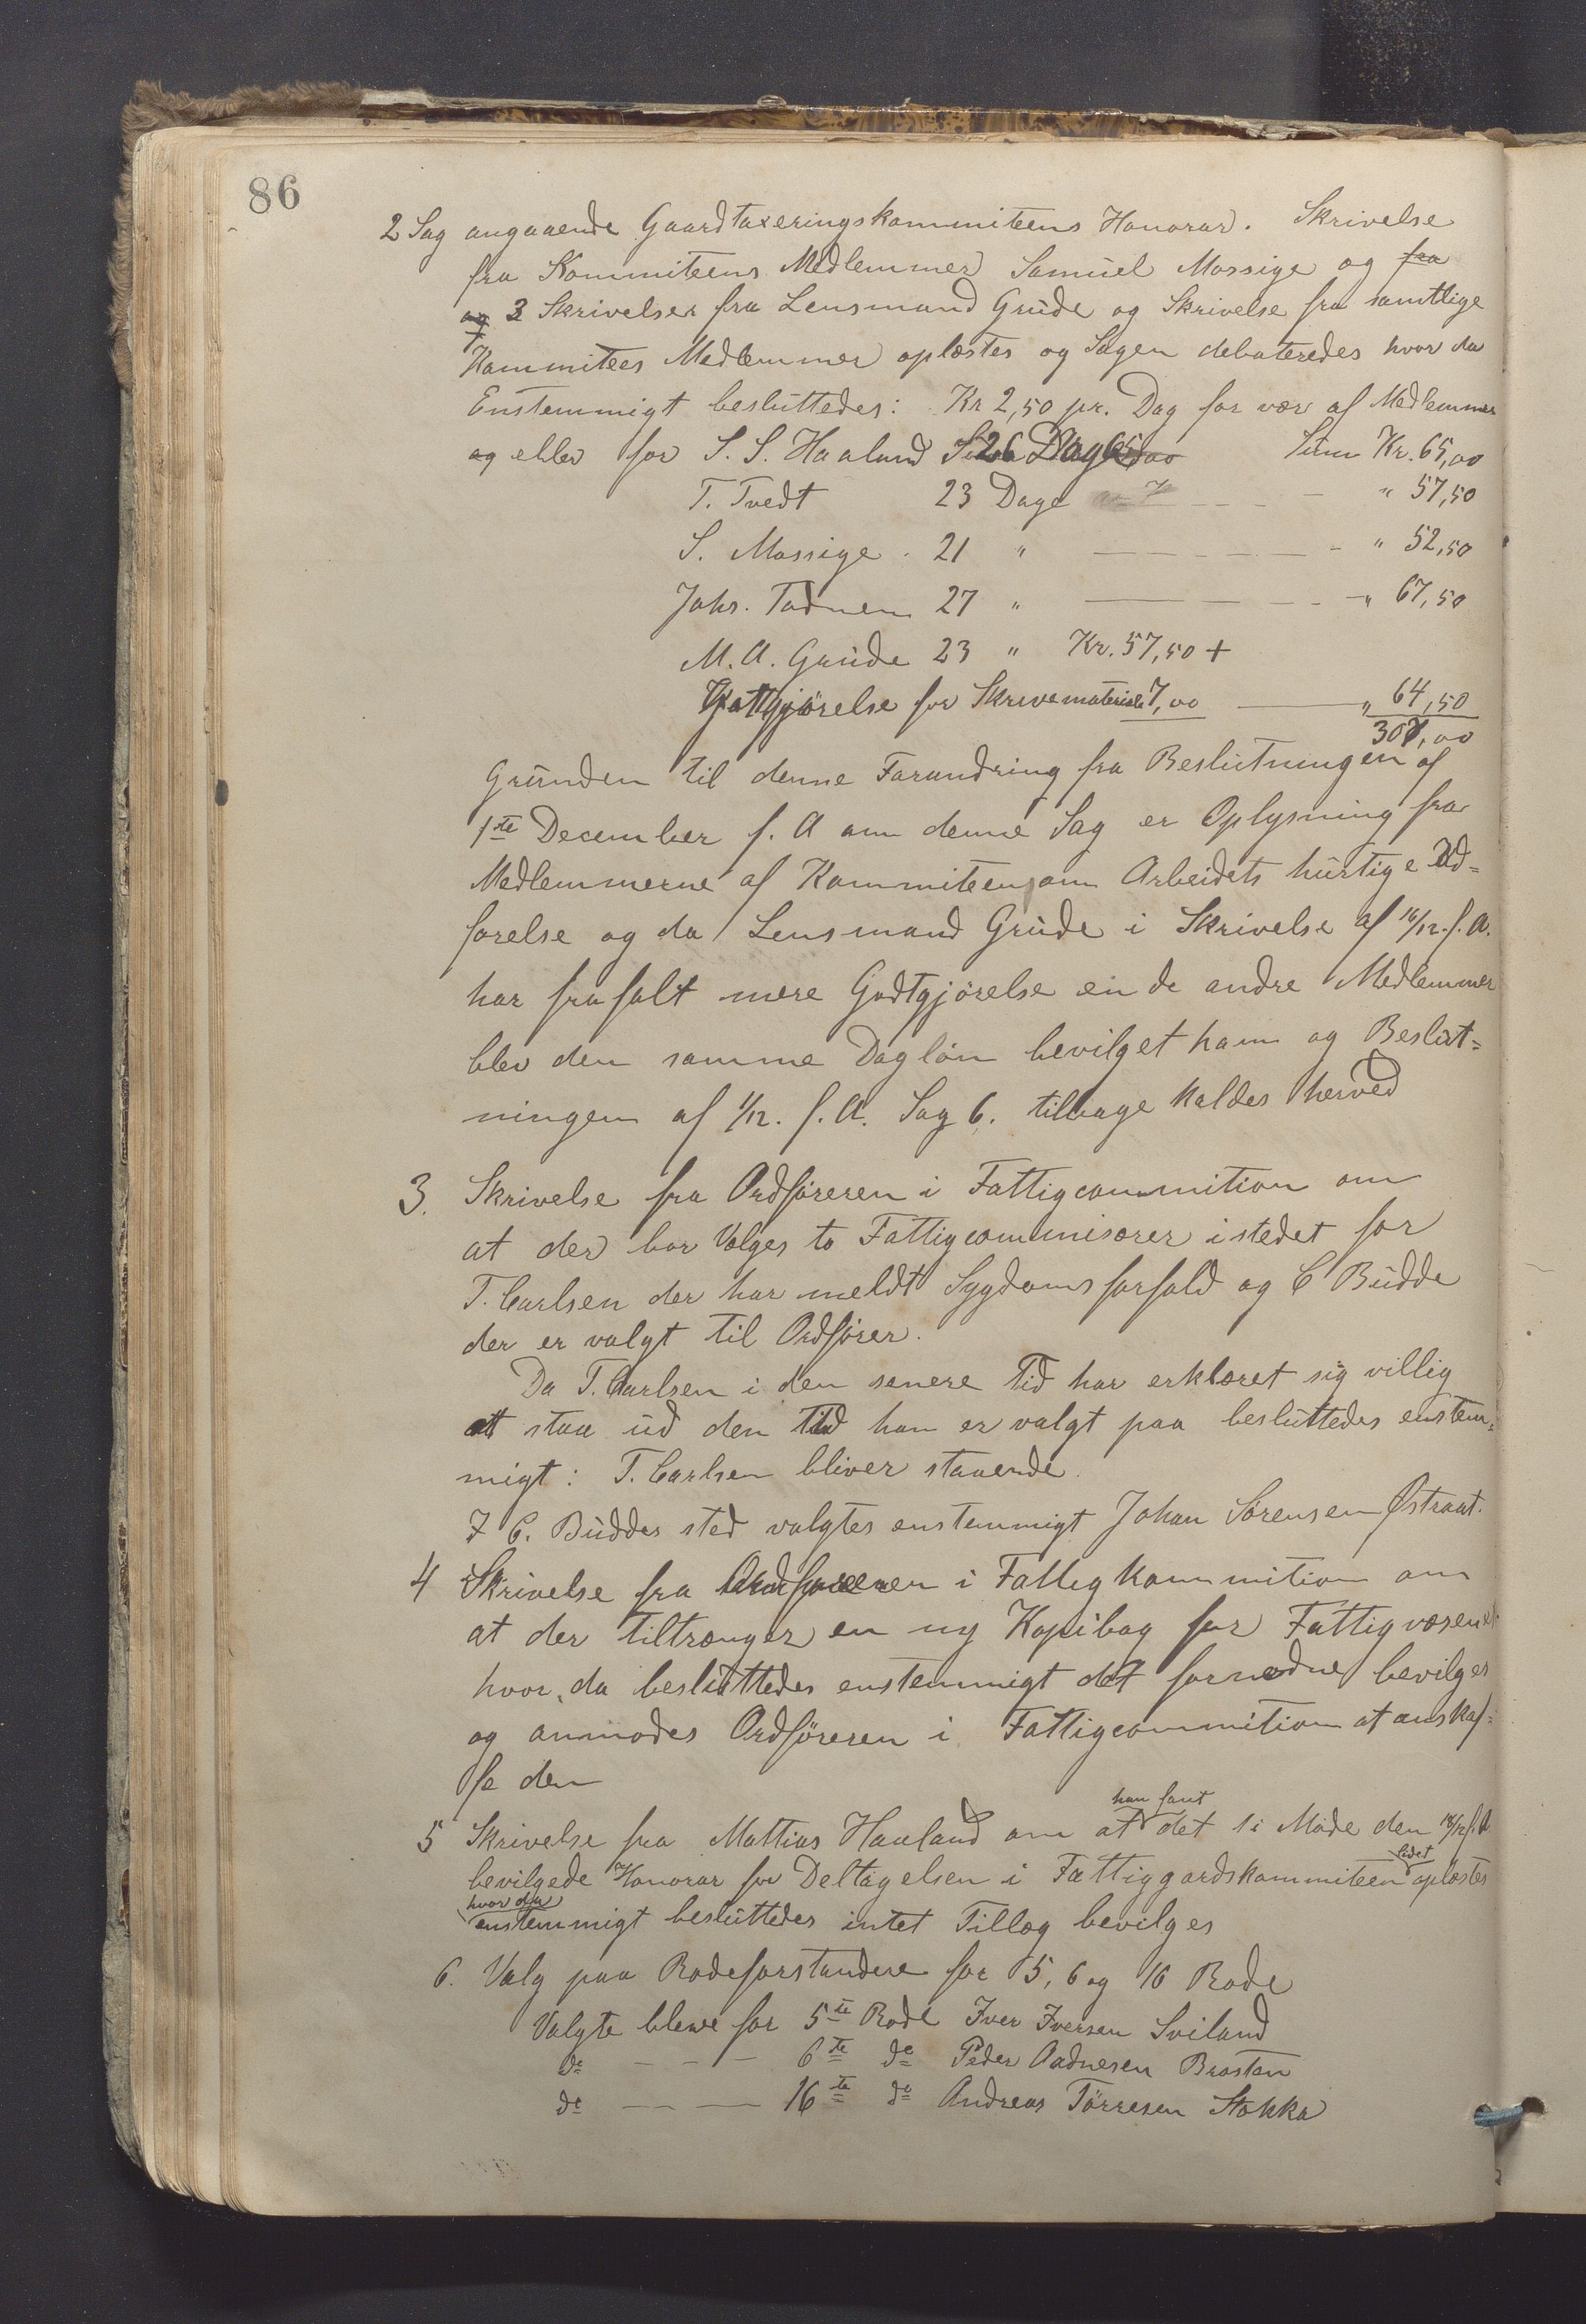 86
2 Sag angaaende Gaardtaxeringskommiteens Honorar. Skrivelse
fra Kommiteens Medlemmer Samuel Mossige og fra
og 3 Skrivelser fra Lensmand Grude og Skrivelse fra samtlige
Kommitees Medlemmer oplæstes og Sagen debateredes hvor da
Enstemmigt besluttedes: Kr 2,50 pr. Dag for vær af Medlemmer
og eller for S. S. Haaland 26 Dage Sum Kr. 65,00
T. Tvedt 23 Dage " 57,50
S. Mossige 21 " " 52,50
Johs. Tadnem 27 " " 67,50
M. A. Grude 23 " Kr. 57,50 +
Gottgjörelse for Skrivematerial 7,00 " 64,50
307,00
Grunden til denne Forandring fra Beslutningen af
1ste December f. A om denne Sag er Oplysning fra
Medlemmerne af Kommiteen om Arbeidets hurtige Ud-
førelse og da Lensmand Grude i Skrivelse af 16/12. f. A.
har frafalt mere Godtgjörelse en de andre Medlemmer
blev den samme Daglön bevilget ham og Beslut-
ningen af 1/12. f. A. Sag 6. tilbage kaldes herved
3. Skrivelse fra Ordföreren i Fattigcommition om
at der bør Vælges to Fattigcommisærer istedet for
T. Carlsen der har meldt Sygdomsforfald og C Budde
der er valgt til Ordförer.
Da T. Carlsen i den senere Tid har erklæret sig villig
at staa ud den Tid han er valgt paa besluttedes enstem-
migt: T. Carlsen bliver staaende.
I C. Buddes sted valgtes enstemmigt Johan Sörensen Østraat.
4 Skrivelse fra Ordföreren i Fattigkommition om
at der tiltrænger en ny Kopibog for Fattigvæsenet
hvor da besluttedes enstemmigt det fornødne bevilges
og anmodes Ordföreren i Fattigcommition at anskaf-
fe den
5 Skrivelse fra Mattias Haaland om at han fant det i Möde den f. A
bevilgede Honorar for Deltagelsen i Fattiggardskommiteen lidet oplæstes
hvor da enstemmigt besluttedes intet Tillæg bevilges
6. Valg paa Rodeforstandere for 5, 6 og 16 Rode
Valgte bleve for 5te Rode Iver Iversen Sviland
do - - - 6te do Peder Aadnesen Brasten
do - - - 16te do Andreas Törresen Stokka